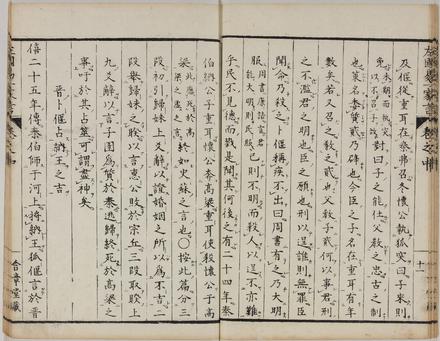 左國易一家言 卷之中 十一
及偃從重耳在秦弗召冬懷公執狐突曰子來則
免未期而執突以不召子故對曰子之能仕父教之忠古之制
也策名委質貳乃辟也今臣之子名在重耳有年
數矣若又召之教之貳也父教子貳何以事君刑
之不濫君之明也臣之願也淫刑以逞誰則無罪臣
聞命乃殺之卜偃稱疾不出曰周書有之乃大明
服周書康誥言君能大明則民服己則不明而殺人以逞不亦難
乎民不見德而戮是聞其何後之有二十四年秦
伯納公子重耳懷公奔高梁重耳使殺懷公于高
梁此應死於高梁之虛之言於如史蘇之言也〇按此篇分三
段初引歸妹上爻解以證婚姻之所以為不吉二
段舉歸妹之睽以言惠公敗於宗丘三段取睽上
九爻解以言子圉為質於秦逃歸終死於高梁之
事吁於其占筮可謂盡神矣
晉卜偃占納王之吉
僖二十五年傳秦伯師于河上將納王狐偃言於晉
合章堂藏